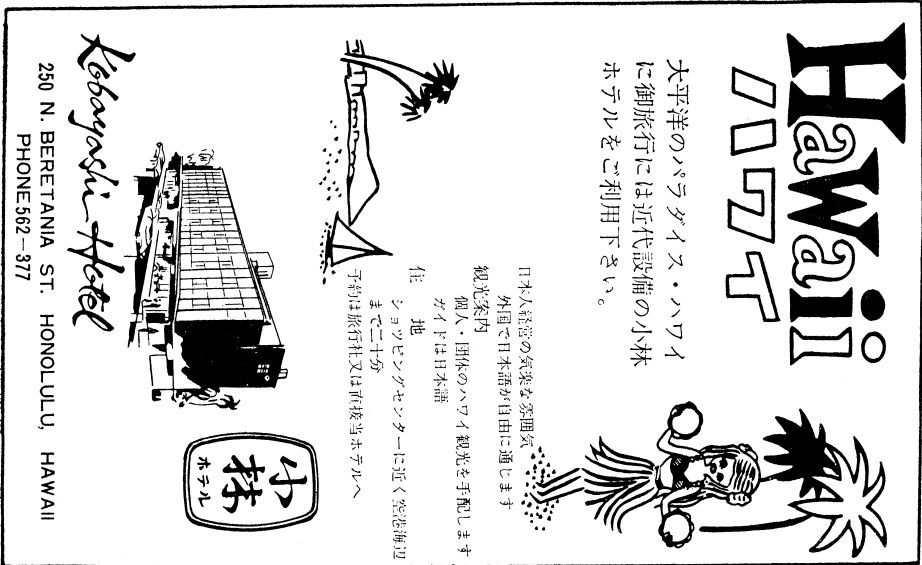 Hawaii
ハワイ
大平洋のパラダイス・ハワイ
に御旅行には近代設備の小林
ホテルをご利用下さい。
日本人経営の気楽な雰囲気
外国で日本語が自由に通じます
観光案内
個人・団体のハワイ観光を手配します
ガイドは日本語
住　地
ショッピングセンターに近く空港海辺
まで二十分
予約は旅行社又は直接当ホテルへ
小林
ホテル
Kobayashi Hotel
250 N. BERETANIA ST. HONOLULU, HAWAII
PHONE 562-377